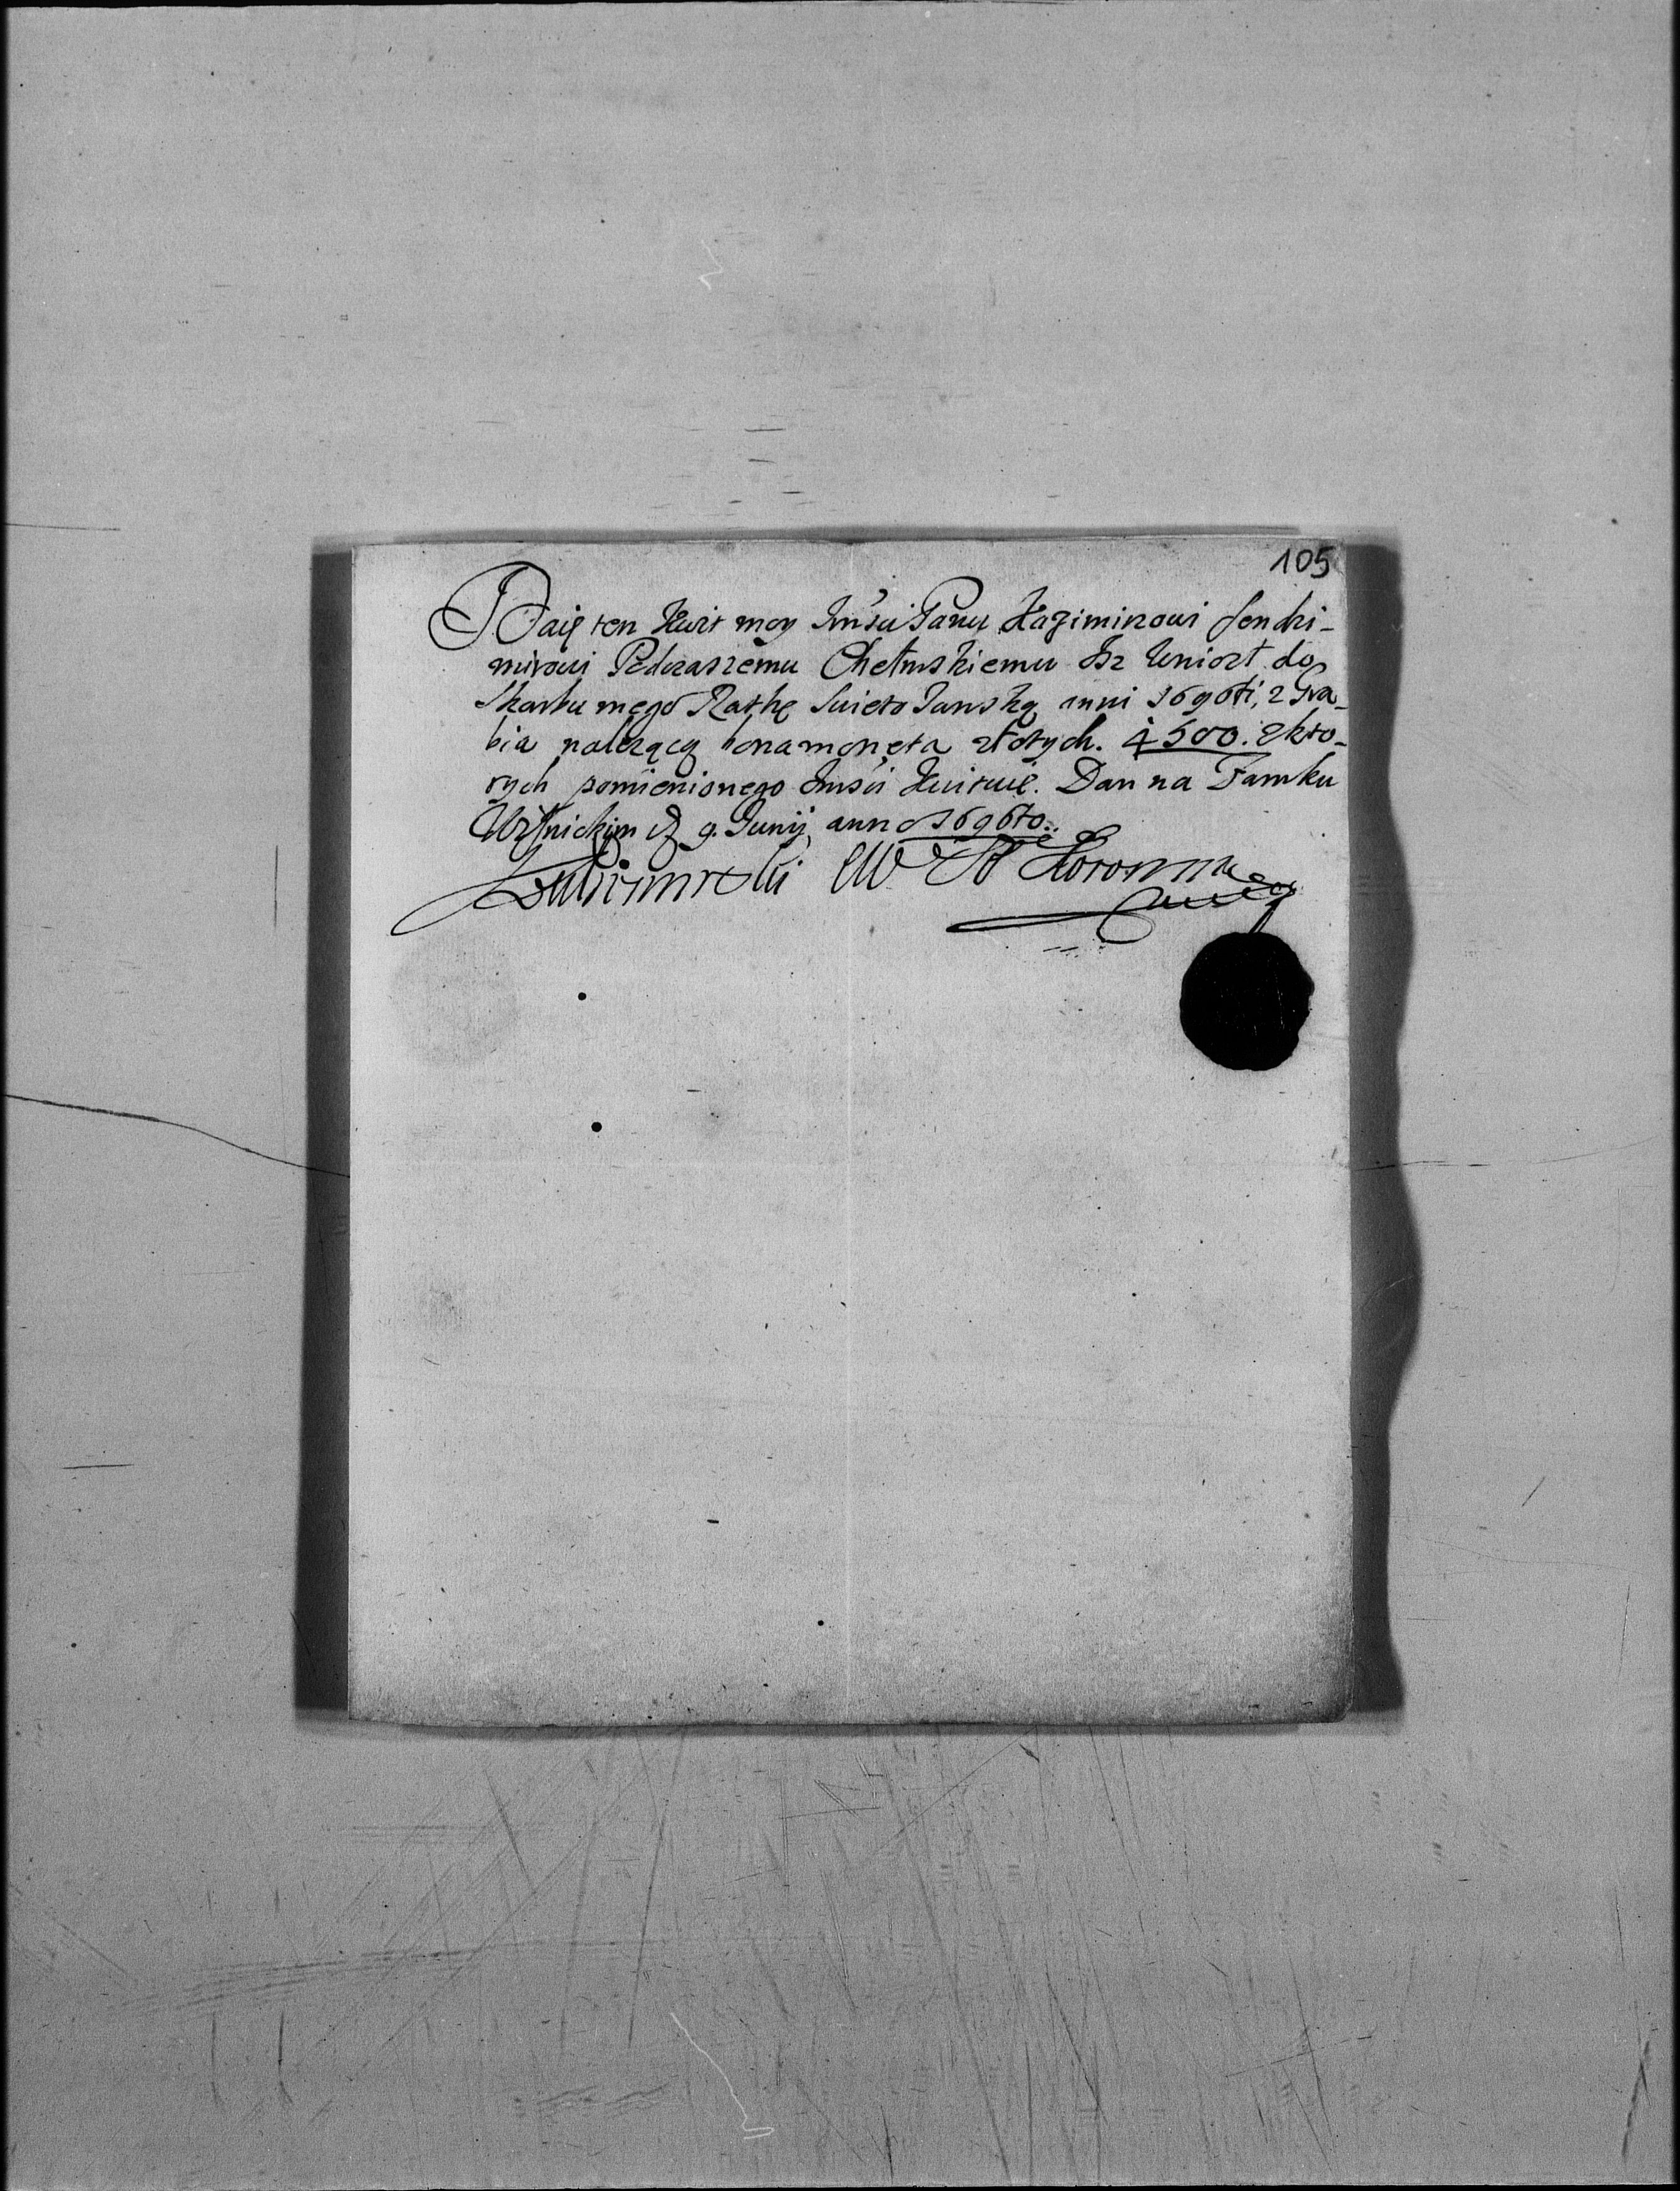 105
Daię ten Kwit moy Jmsci Panu Kazimirzowi Sendzi-
mirowi Podczaszemu Chełmskiemu Isz Uniozł do
Skarbu mego Rathę Swięto Janską anni 1696ti, z Gra-
bia nalezącą bona moneta złotych. 4500. Zkto-
rych pomienionego Jmsci Kwituię. Dan na Zamku
Wiśnickim D 9. Junij, anno 1696to.
Lubomirski MW Koronny